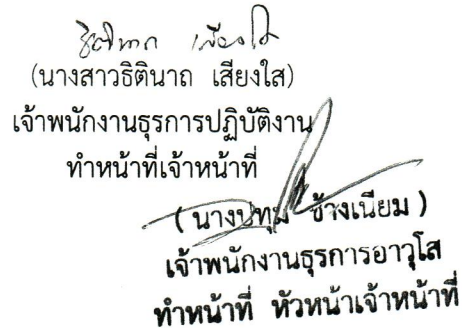 ธิตินาถ เสียงใส
(นางสาวธิตินาถ เสียงใส)
เจ้าพนักงานธุรการปฏิบัติงาน
ทำหน้าที่เจ้าหน้าที่
(นางปทุม ช้างเนียม)
เจ้าพนักงานธุรการอาวุโส
ทำหน้าที่ หัวหน้าเจ้าหน้าที่